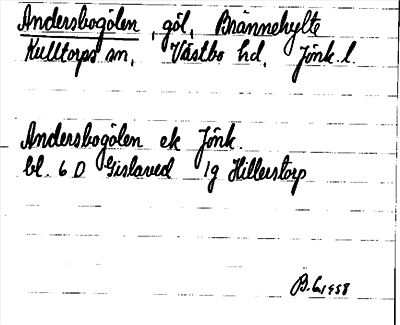 Andersbogölen, göl, Brännehylte
Kulltorps sn, Västbo hd, Jönk. l.
Andersbogölen ek Jönk.
bl. 6 D Gislaved 1g Hillerstorp
B. G 1958